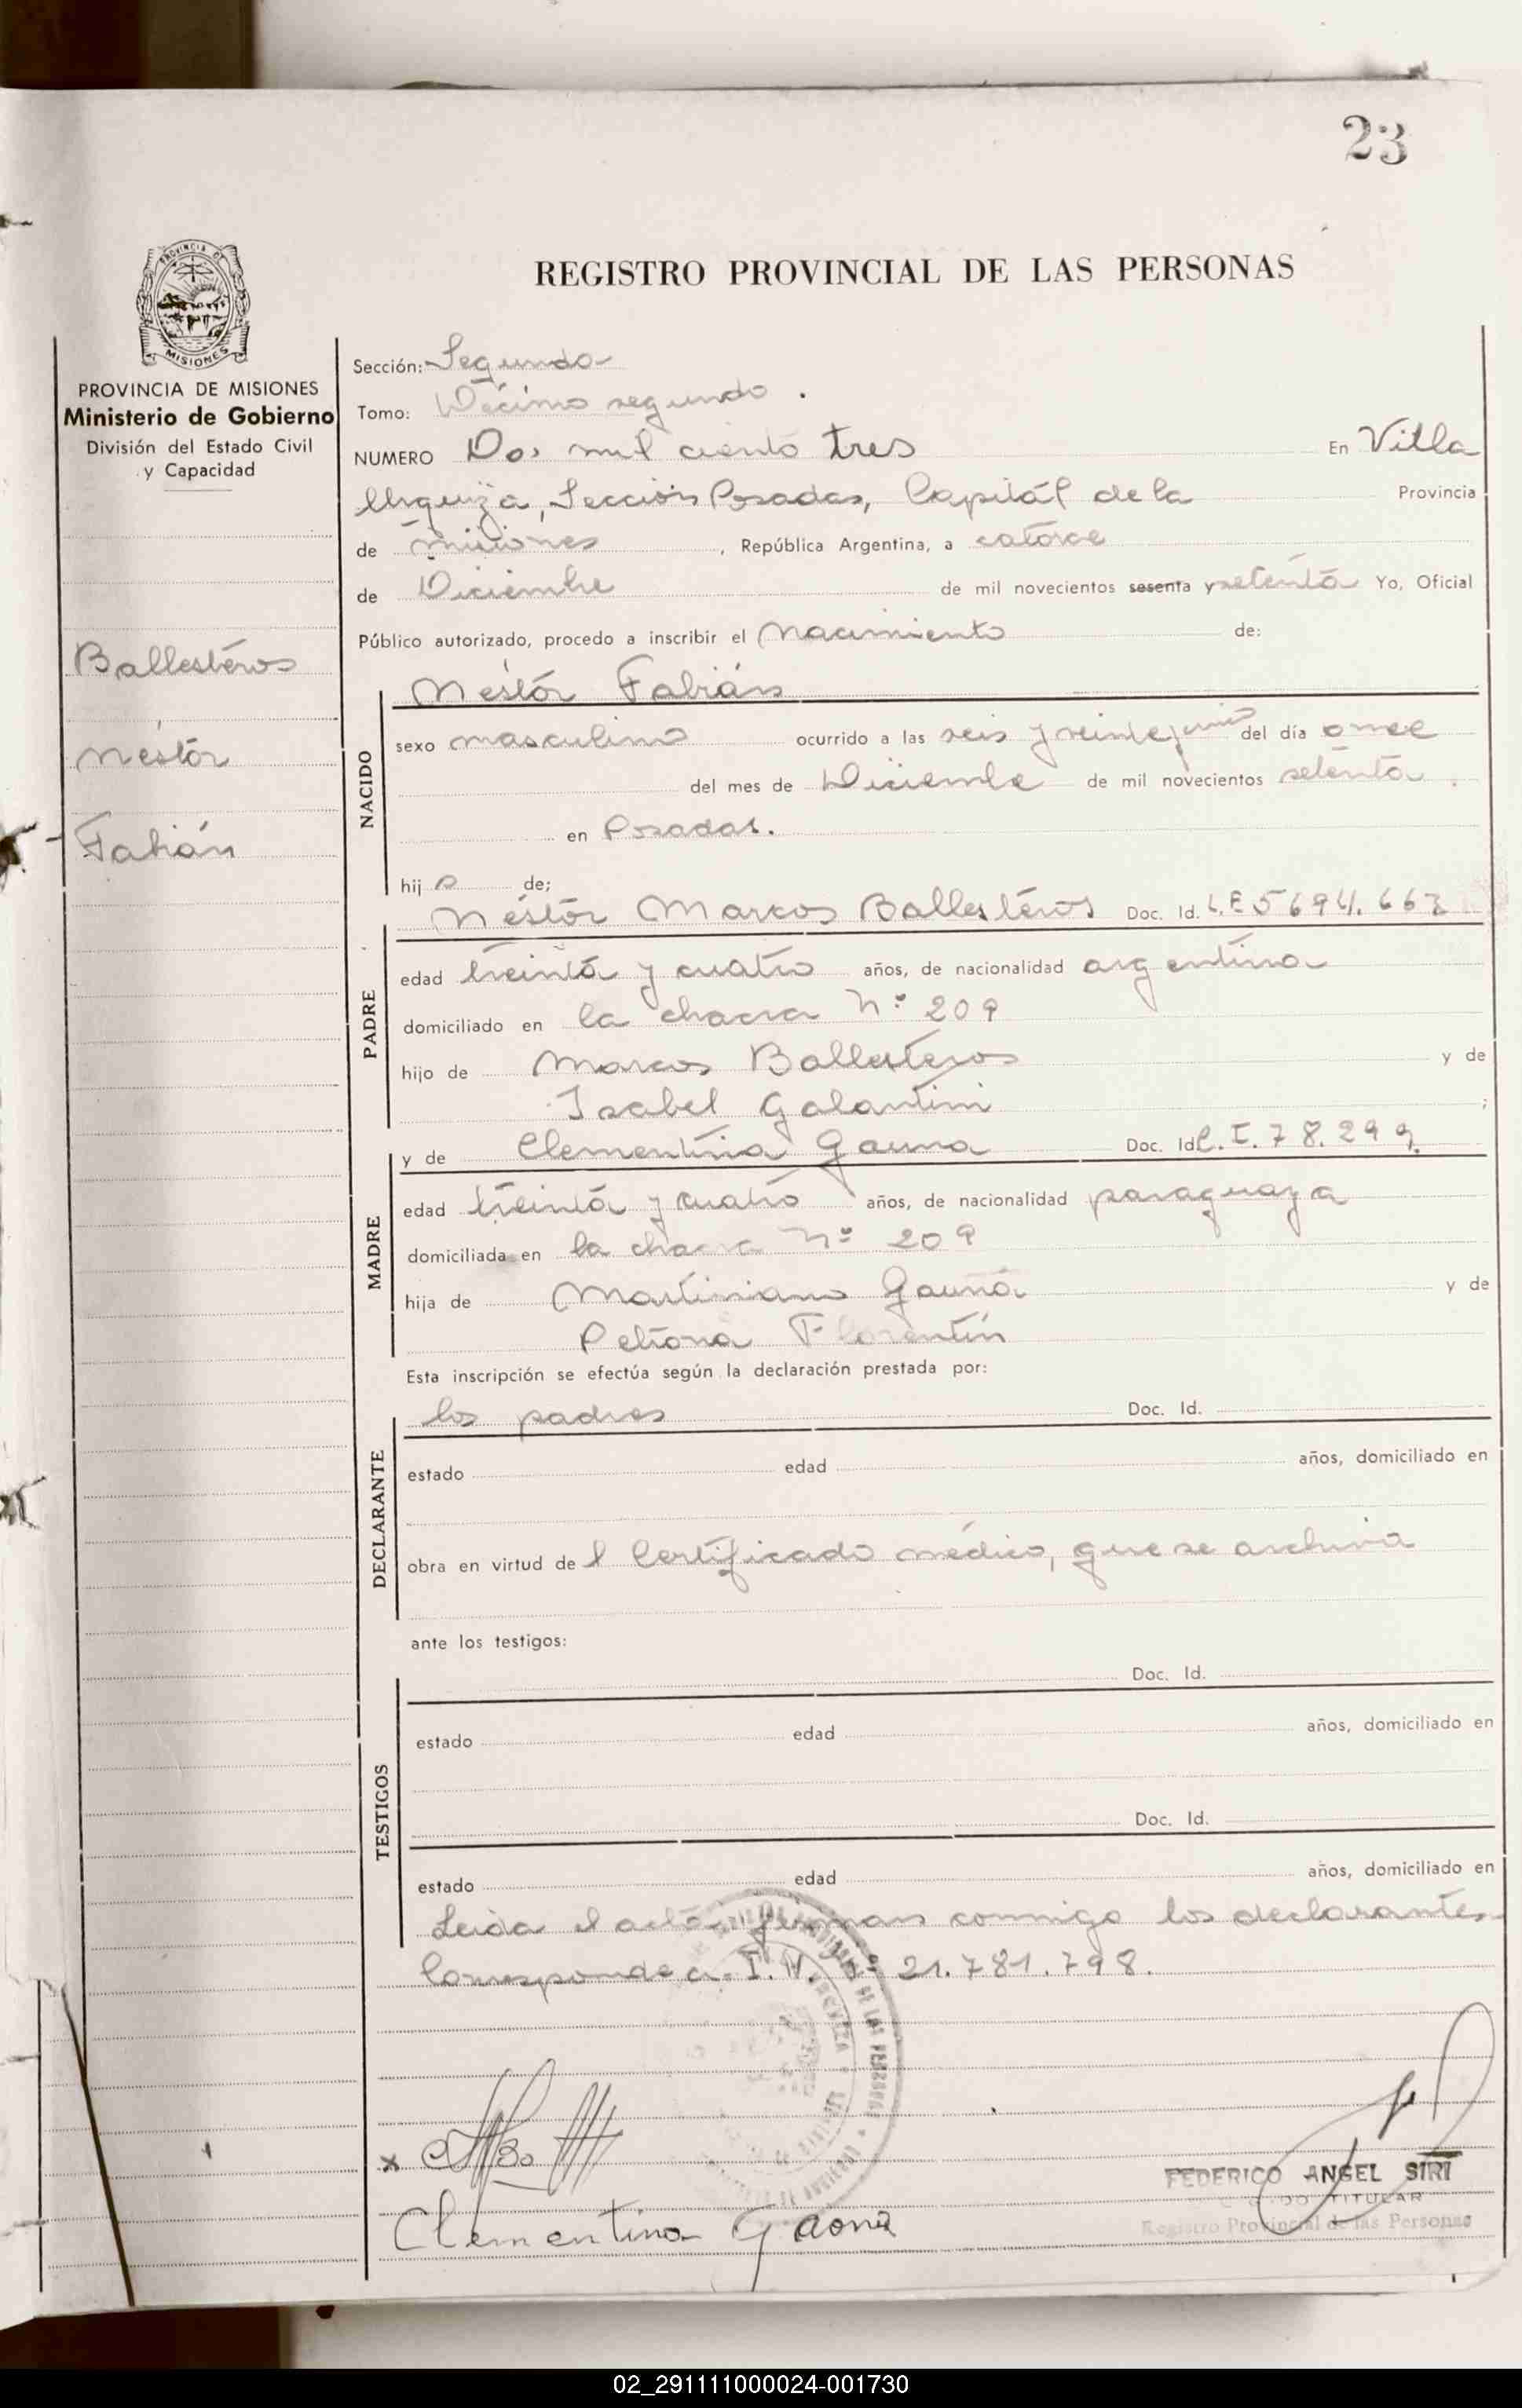 23
PROVINCIA DE
MISIONES
REGISTRO PROVINCIAL DE LAS PERSONAS
PROVINCIA DE MISIONES
Ministerio de Gobierno
División del Estado Civil
y Capacidad
Ballesteros
Néstor
Fabián
Sección: Segundo
Tomo: Décimo segundo.
NUMERO Dos mil ciento tres En Villa
Urquiza, Sección Posadas, Capital de la Provincia
de Misiones, República Argentina, a catorce
de Diciembre de mil novecientos sesenta y setenta Yo, Oficial
Público autorizado, procedo a inscribir el Nacimiento de:
Néstor Fabián
NACIDO
sexo masculino ocurrido a las seis y veinte y del día once
del mes de Diciembre de mil novecientos setenta
en Posadas.
hijo de;
Néstor Marcos Ballesteros Doc. Id. L.E 5694.663
PADRE
edad treinta y cuatro años, de nacionalidad argentina
domiciliado en la chacra Nº 209
hijo de Marcos Ballesteros y de
Isabel Galantini ;
y de Clementina Gauna Doc. Id C.I. 78.299
MADRE
edad treinta y cuatro años, de nacionalidad paraguaya
domiciliada en la chacra Nº 209
hija de Martiniano Gauna y de
Petrona Florentín
Esta inscripción se efectúa según la declaración prestada por:
los padres Doc. Id.
DECLARANTE
estado edad años, domiciliado en
obra en virtud del Certificado médico, que se archiva
ante los testigos:
Doc. Id.
TESTIGOS
estado edad años, domiciliado en
Doc. Id.
estado edad años, domiciliado en
Leida el acta, firman conmigo los declarantes
Corresponde a. I.N. Nº 21.781.798.
x
Clementina Gaona
FEDERICO ANGEL SIRI
TITULAR
Registro Provincial de las Personas
02_291111000024-001730